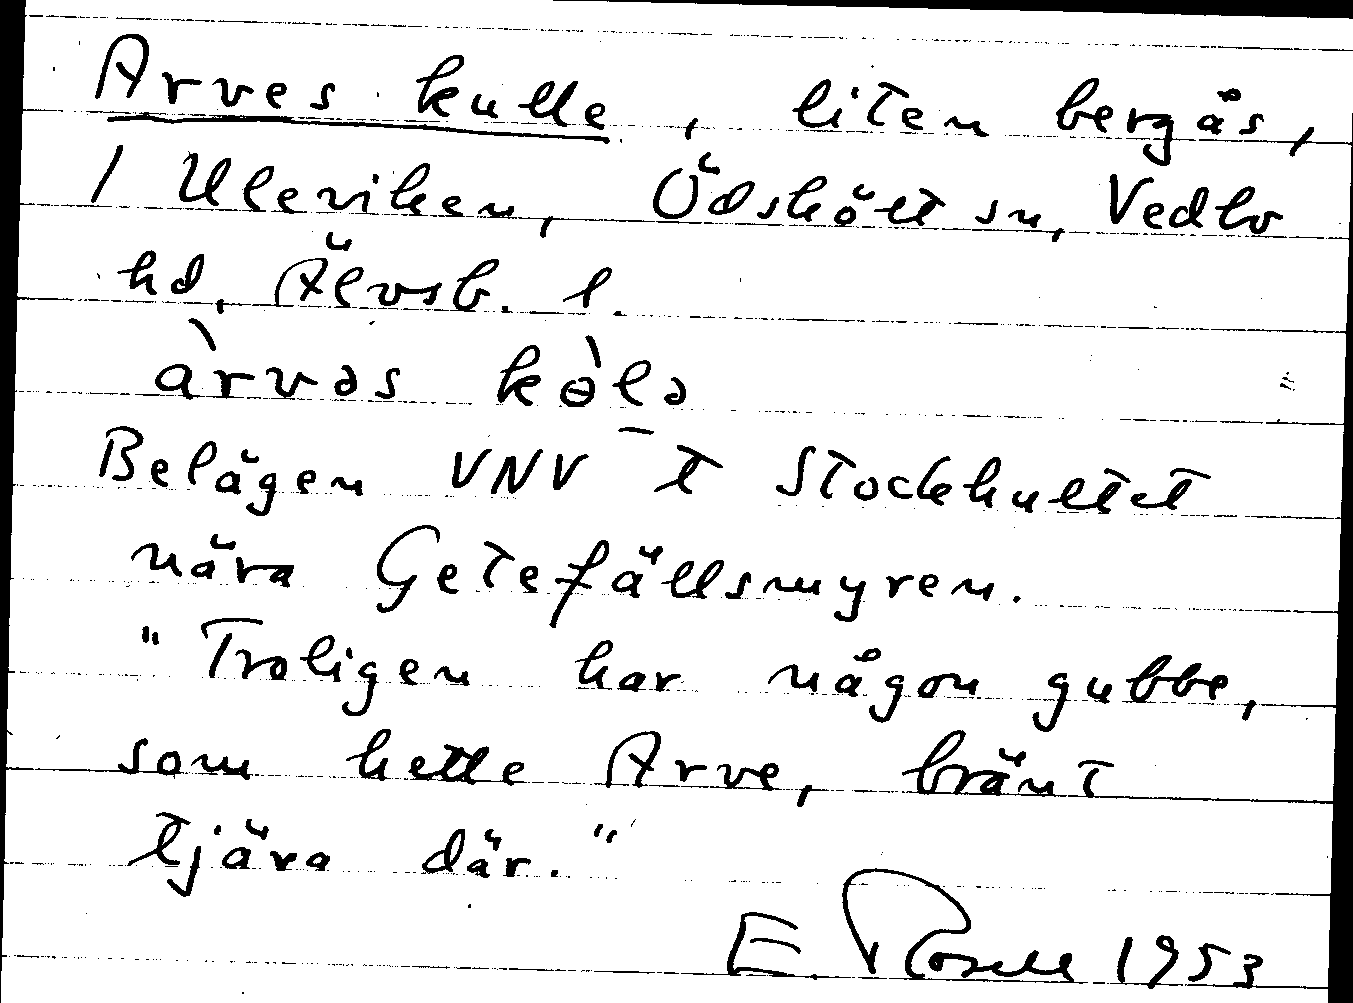 Arves kulle, liten bergås,
/ Uleviken, Ödskölt sn, Vedbo
hd, Älvsb. l.
àrvəs kòlə
Belägen VNV t Stockhultet
nära Getefjällsmyren.
"Troligen har någon gubbe,
som hette Arve, bränt
tjära där."
E. Rosell 1953